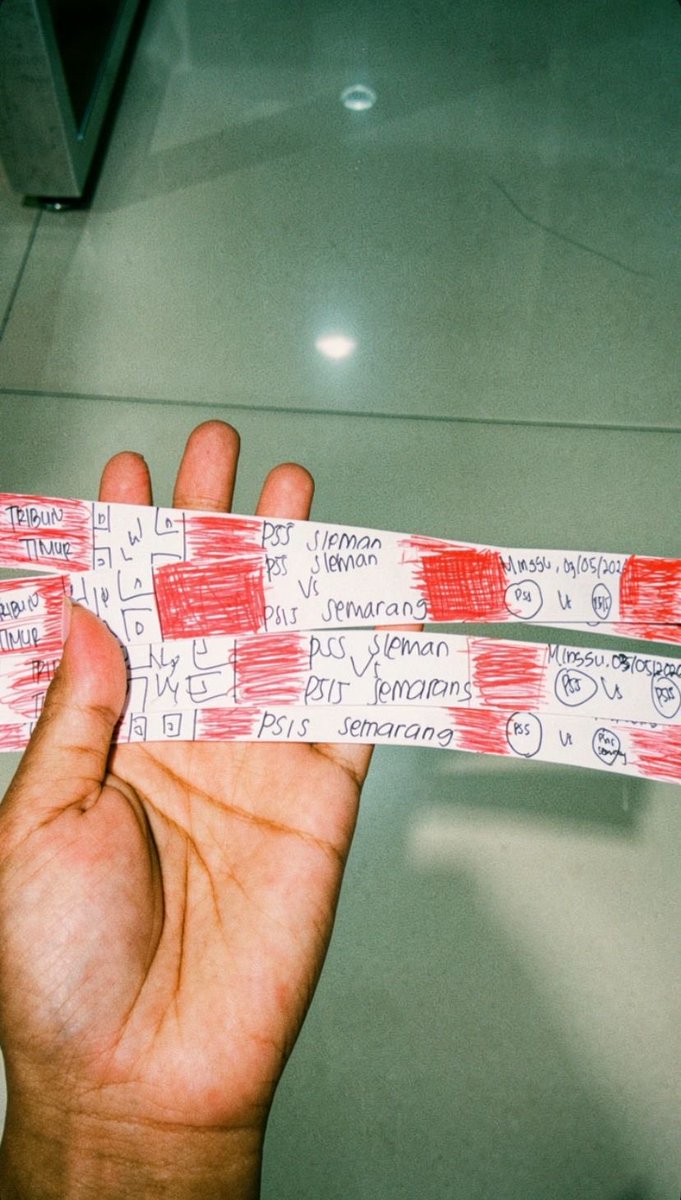 TRIBUN
TIMUR
PSS Sleman
PSS Sleman
Vs
PSIS Semarang
Minggu, 03/05/202
PSS Vs PSIS
TRIBUN
TIMUR
PSS Sleman
Vs
PSIS Semarang
Minggu, 03/05/2026
PSS Vs PSIS
PSIS Semarang
PSS Vs PSIS